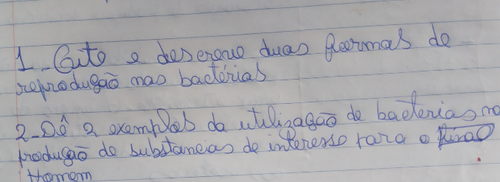 1_ Cite e descreve duas formas de
reprodução nas bactérias
2-Dê 2 exemplos da utilização de bacterias na
produção de substancias de interesse para o
Homem